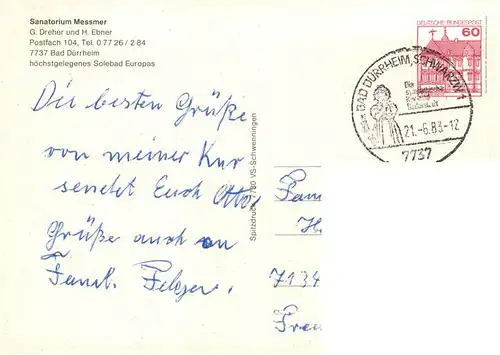 Sanatorium Messmer
G. Dreher und H. Ebner
Postfach 104, Tel. 0 77 26 / 2 84
7737 Bad Dürrheim
höchstgelegenes Solebad Europas
DEUTSCHE BUNDESPOST
60
BAD DÜRRHEIM, SCHWARZW
21.-6.83-12
7737
Die besten Grüße
von meiner Kur
sendet Euch Otto,
Grüße auch an
Faml.
Spitzdruck 7730 VS-Schwenningen
Fam
H
7134